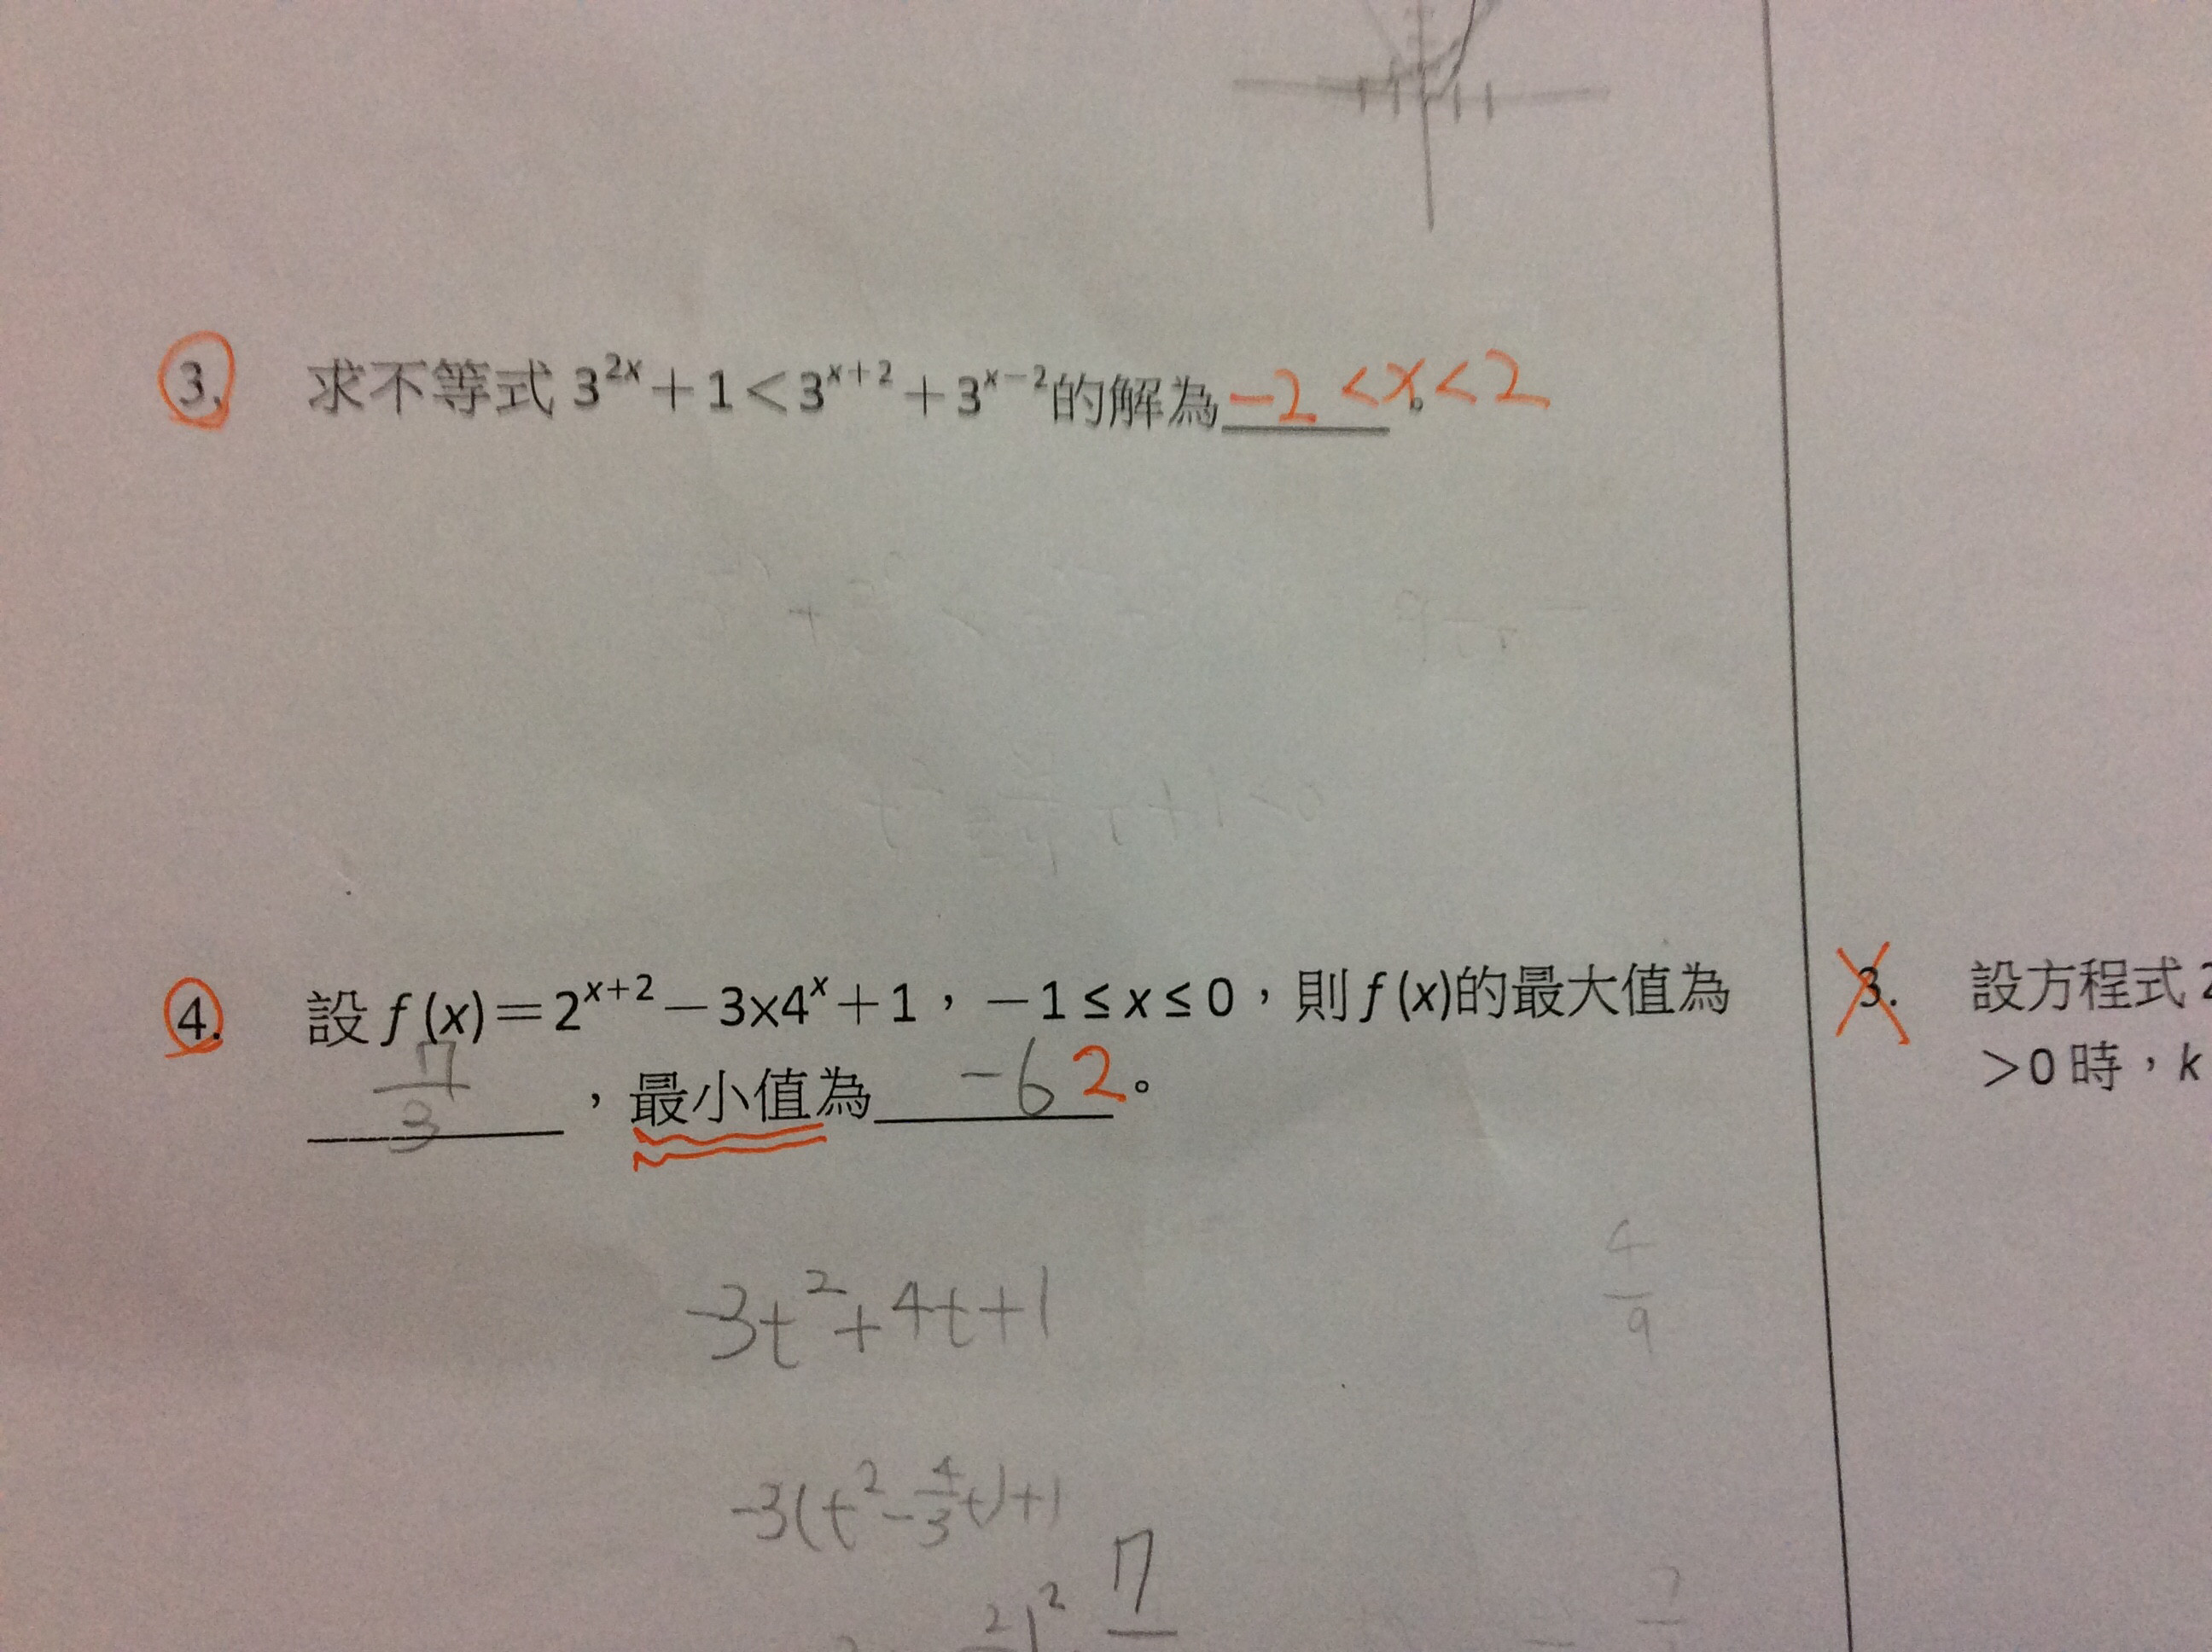 3. 求不等式 3^{2x}＋1＜3^{x＋2}＋3^{x－2}的解為 -2<x<2。
4. 設 f (x)＝2^{x＋2}－3x4^x＋1，－1 ≤ x ≤ 0，則 f (x)的最大值為
7/3，最小值為 -6 2。
-3t²+4t+1
4/9
-3(t²-4/3t)+1
7
3. 設方程式 2
＞0 時，k